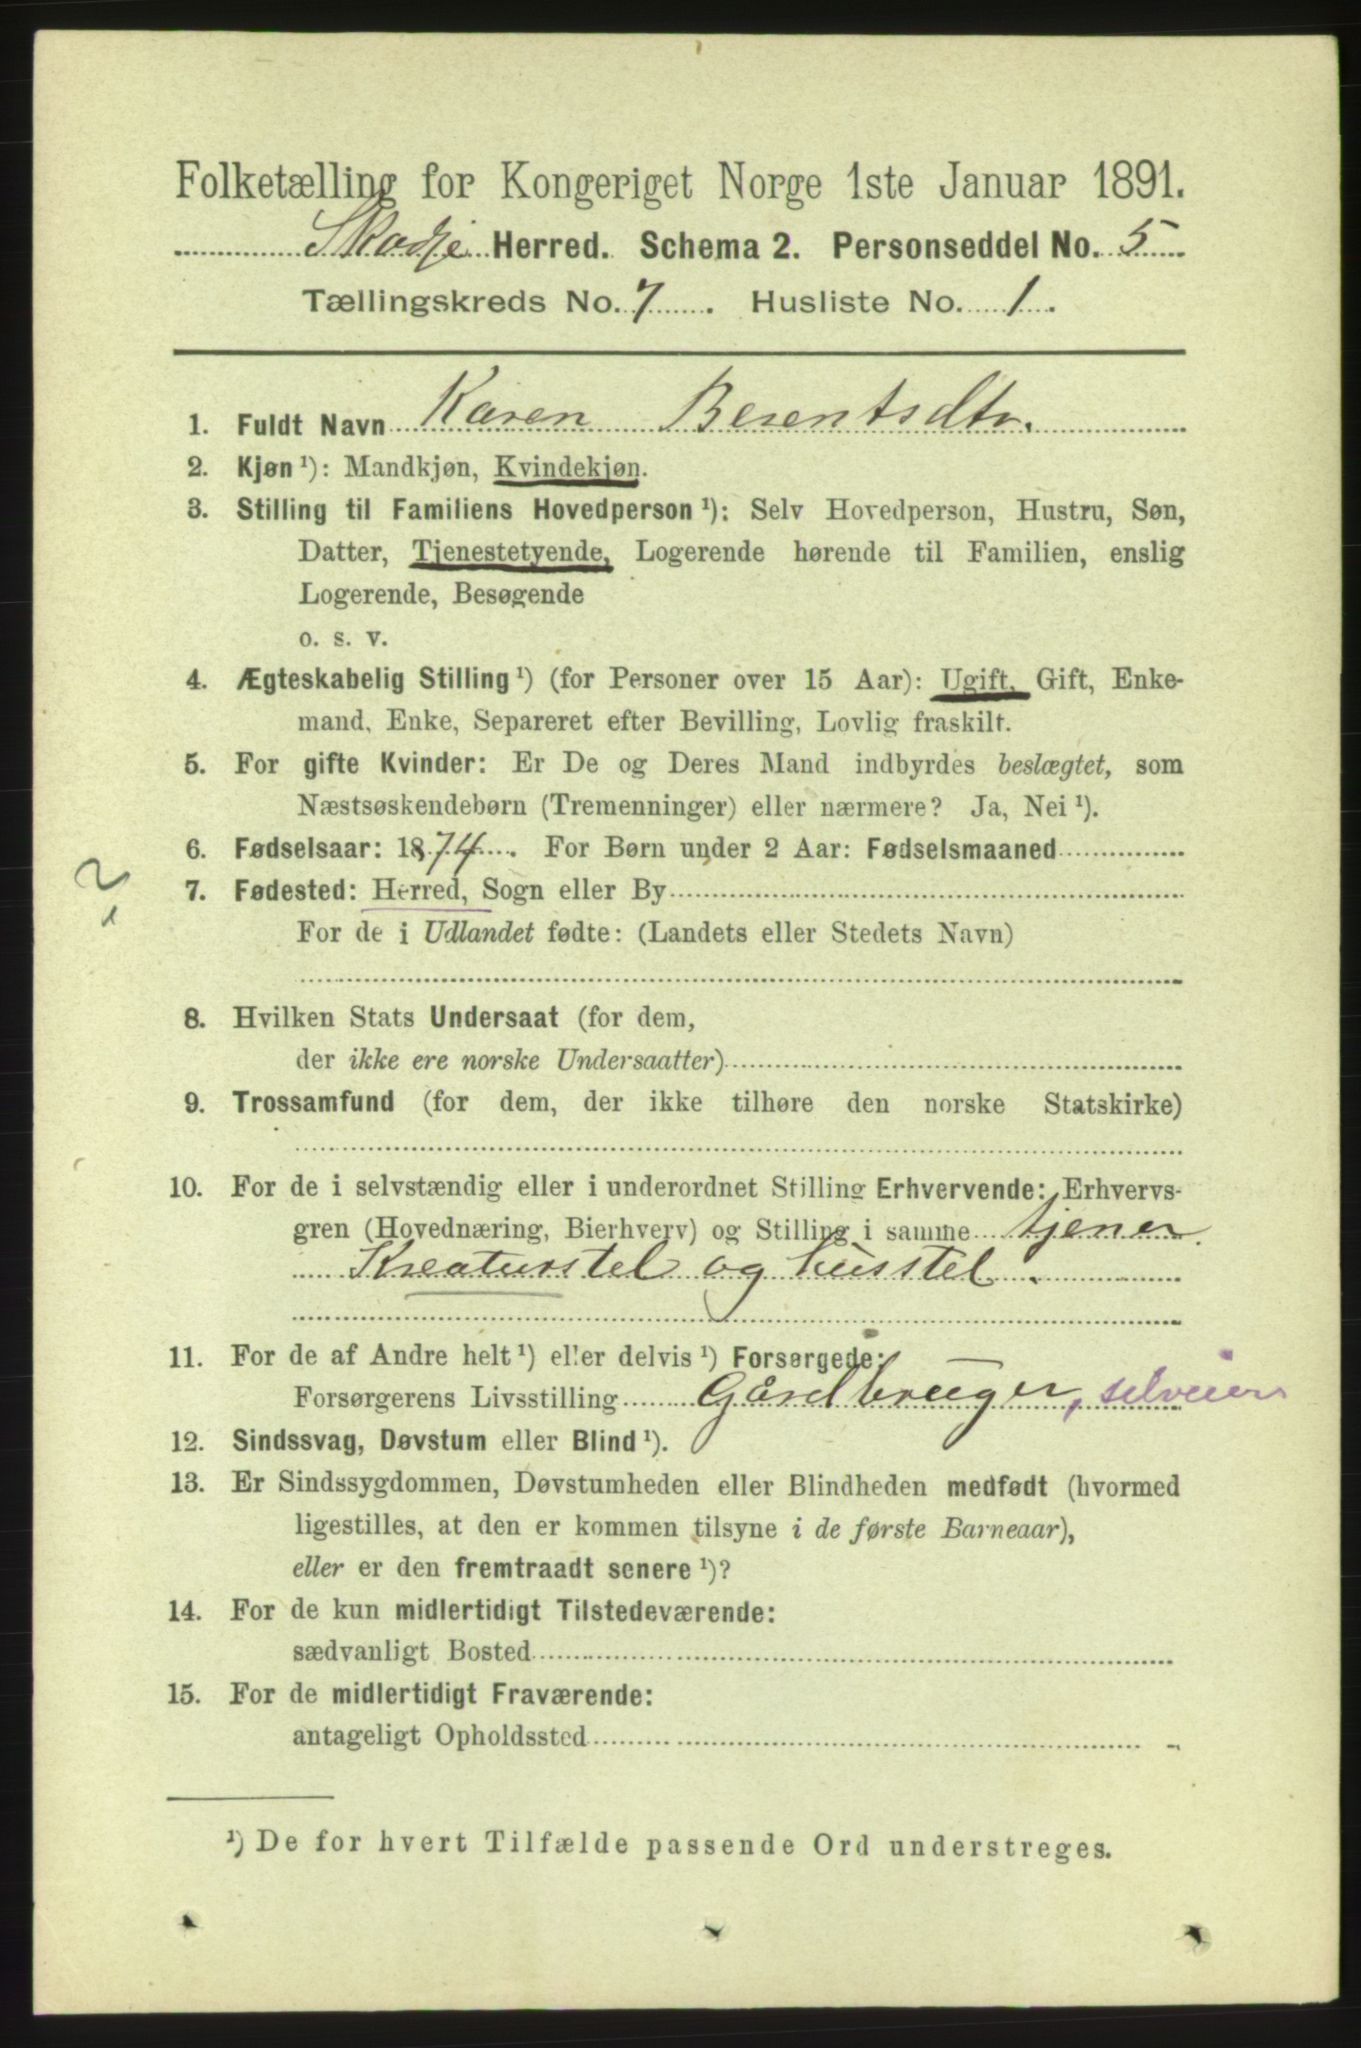 Folketælling for Kongeriget Norge 1ste Januar 1891.
Skodje Herred. Schema 2. Personseddel No. 5
Tællingskreds No. 7. Husliste No. 1.
1. Fuldt Navn Karen Berentsdtr.
2. Kjøn ¹): Mandkjøn, Kvindekjøn.
3. Stilling til Familiens Hovedperson ¹): Selv Hovedperson, Hustru, Søn,
Datter, Tjenestetyende, Logerende hørende til Familien, enslig
Logerende, Besøgende
o. s. v.
4. Ægteskabelig Stilling ¹) (for Personer over 15 Aar): Ugift, Gift, Enke-
mand, Enke, Separeret efter Bevilling, Lovlig fraskilt.
5. For gifte Kvinder: Er De og Deres Mand indbyrdes beslægtet, som
Næstsøskendebørn (Tremenninger) eller nærmere? Ja, Nei ¹).
6. Fødselsaar: 1874. For Børn under 2 Aar: Fødselsmaaned
7. Fødested: Herred, Sogn eller By
For de i Udlandet fødte: (Landets eller Stedets Navn)
8. Hvilken Stats Undersaat (for dem,
der ikke ere norske Undersaatter)
9. Trossamfund (for dem, der ikke tilhøre den norske Statskirke)
10. For de i selvstændig eller i underordnet Stilling Erhvervende: Erhvervs-
gren (Hovednæring, Bierhverv) og Stilling i samme tjener
Kreaturstel og husstel.
11. For de af Andre helt ¹) eller delvis ¹) Forsørgede:
Forsørgerens Livsstilling Gårdbruger, selveier
12. Sindssvag, Døvstum eller Blind ¹).
13. Er Sindssygdommen, Døvstumheden eller Blindheden medfødt (hvormed
ligestilles, at den er kommen tilsyne i de første Barneaar),
eller er den fremtraadt senere ¹)?
14. For de kun midlertidigt Tilstedeværende:
sædvanligt Bosted
15. For de midlertidigt Fraværende:
antageligt Opholdssted
¹) De for hvert Tilfælde passende Ord understreges.